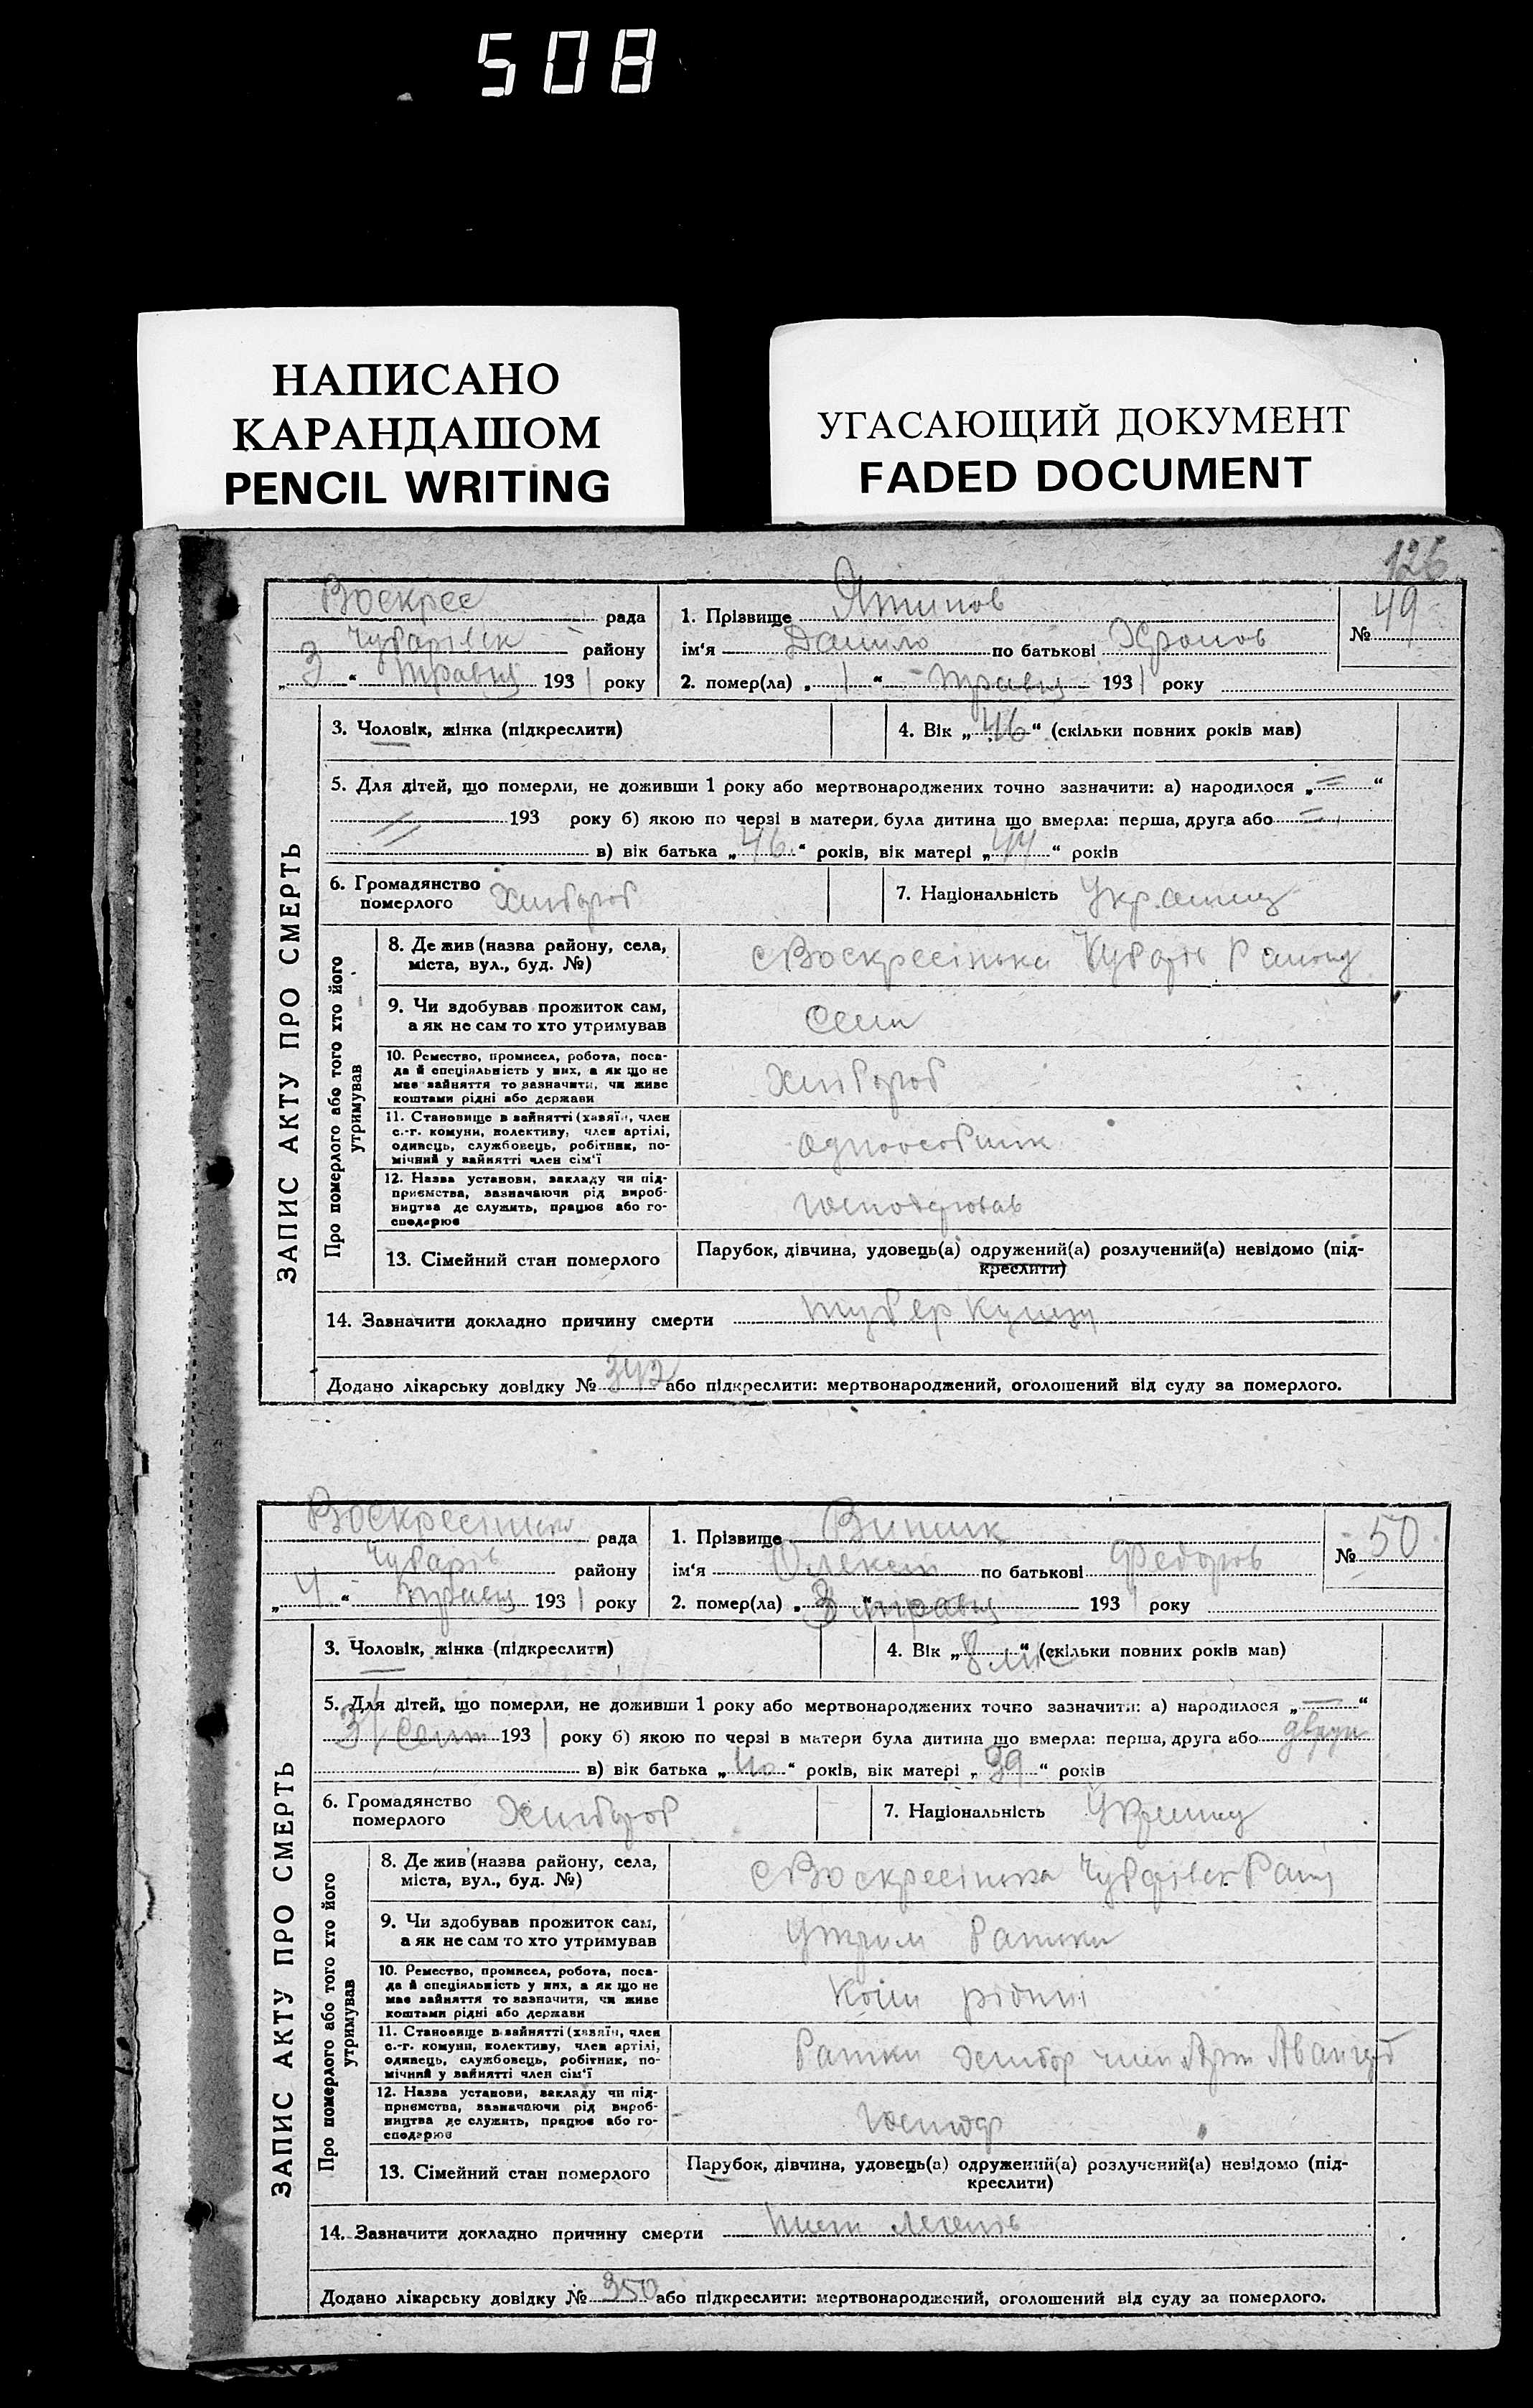 508
НАПИСАНО
КАРАНДАШОМ
PENCIL WRITING
УГАСАЮЩИЙ ДОКУМЕНТ
FADED DOCUMENT
126
ЗАПИС АКТУ ПРО СМЕРТЬ
Воскрес рада
Чубарівск району
„3“ травня 1931 року
1. Прізвище
ім'я Данило по батькові
№ 49
2. помер(ла) „1“ травня 1931 року
3. Чоловік, жінка (підкреслити)
4. Вік „46“ (скільки повних років мав)
5. Для дітей, що померли, не доживши 1 року або мертвонароджених точно зазначити: а) народилося „=“
193 року б) якою по черзі в матери була дитина що вмерла: перша, друга або =
в) вік батька „46“ років, вік матері „44“ років
6. Громадянство
померлого Хлібороб
7. Національність Українец
Про померлого або того хто його
утримував
8. Де жив (назва району, села,
міста, вул., буд. №)
с Воскресінька Чубарів Району
9. Чи здобував прожиток сам,
а як не сам то хто утримував
Сам
10. Ремество, промисел, робота, поса-
да й спеціяльність у них, а як що не
має зайняття то зазначити, чи живе
коштами рідні або держави
Хлібороб
11. Становище в зайнятті (хазяїн, член
с.-г. комуни, колективу, член артілі,
одинець, службовець, робітник, по-
мічний у зайнятті член сім'ї
одноособник
12. Назва установи, закладу чи під-
приємства, зазначаючи рід вироб-
ництва де служить, працює або го-
сподарює
господарював
13. Сімейний стан померлого
Парубок, дівчина, удовець(а) одружений(а) розлучений(а) невідомо (під-
креслити)
14. Зазначити докладно причину смерти туберкульоз
Додано лікарську довідку № 342 або підкреслити: мертвонароджений, оголошений від суду за померлого.
ЗАПИС АКТУ ПРО СМЕРТЬ
Воскресінська рада
Чубарів району
„4“ травня 1931 року
1. Прізвище Виник
ім'я Олексій по батькові Федоров
№ 50
2. помер(ла) „3“ травня 1931 року
3. Чоловік, жінка (підкреслити)
4. Вік „8 міс“ (скільки повних років мав)
5. Для дітей, що померли, не доживши 1 року або мертвонароджених точно зазначити: а) народилося „—“
1931 року б) якою по черзі в матери була дитина що вмерла: перша, друга або друга
в) вік батька „40“ років, вік матері „39“ років
6. Громадянство
померлого Хлібороб
7. Національність Українец
Про померлого або того хто його
утримував
8. Де жив (назва району, села,
міста, вул., буд. №)
с Воскресінька Чубарівск Рай
9. Чи здобував прожиток сам,
а як не сам то хто утримував
Утрим батьки
10. Ремество, промисел, робота, поса-
да й спеціяльність у них, а як що не
має зайняття то зазначити, чи живе
коштами рідні або держави
Кошт рідні
11. Становище в зайнятті (хазяїн, член
с.-г. комуни, колективу, член артілі,
одинець, службовець, робітник, по-
мічний у зайнятті член сім'ї
батьки хлибор член Арт Авангард
12. Назва установи, закладу чи під-
приємства, зазначаючи рід вироб-
ництва де служить, працює або го-
сподарює
господар
13. Сімейний стан померлого
Парубок, дівчина, удовець(а) одружений(а) розлучений(а) невідомо (під-
креслити)
14. Зазначити докладно причину смерти легенів
Додано лікарську довідку № 350 або підкреслити: мертвонароджений, оголошений від суду за померлого.